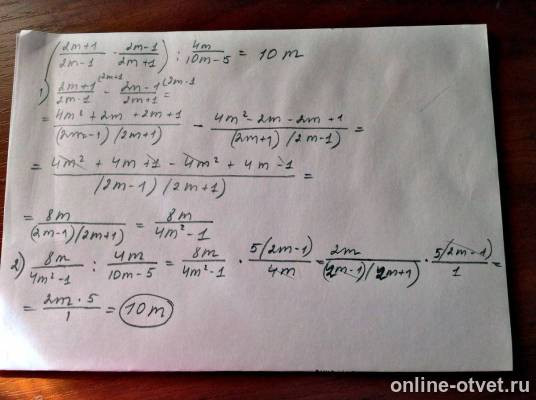 (2m+1/2m-1 - 2m-1/2m+1) : 4m/10m-5 = 10m
1) 2m+1/2m-1 (2m+1 - 2m-1/2m+1 (2m-1 =
= 4m²+2m+2m+1/(2m-1)(2m+1) - 4m²-2m-2m+1/(2m+1)(2m-1) =
= 4m²+4m+1-4m²+4m-1/(2m-1)(2m+1) =
= 8m/(2m-1)(2m+1) = 8m/4m²-1
2) 8m/4m²-1 : 4m/10m-5 = 8m/4m²-1 · 5(2m-1)/4m = 2m/(2m-1)(2m+1) · 5(2m-1)/1 =
= 2m·5/1 = 10m
online-otvet.ru